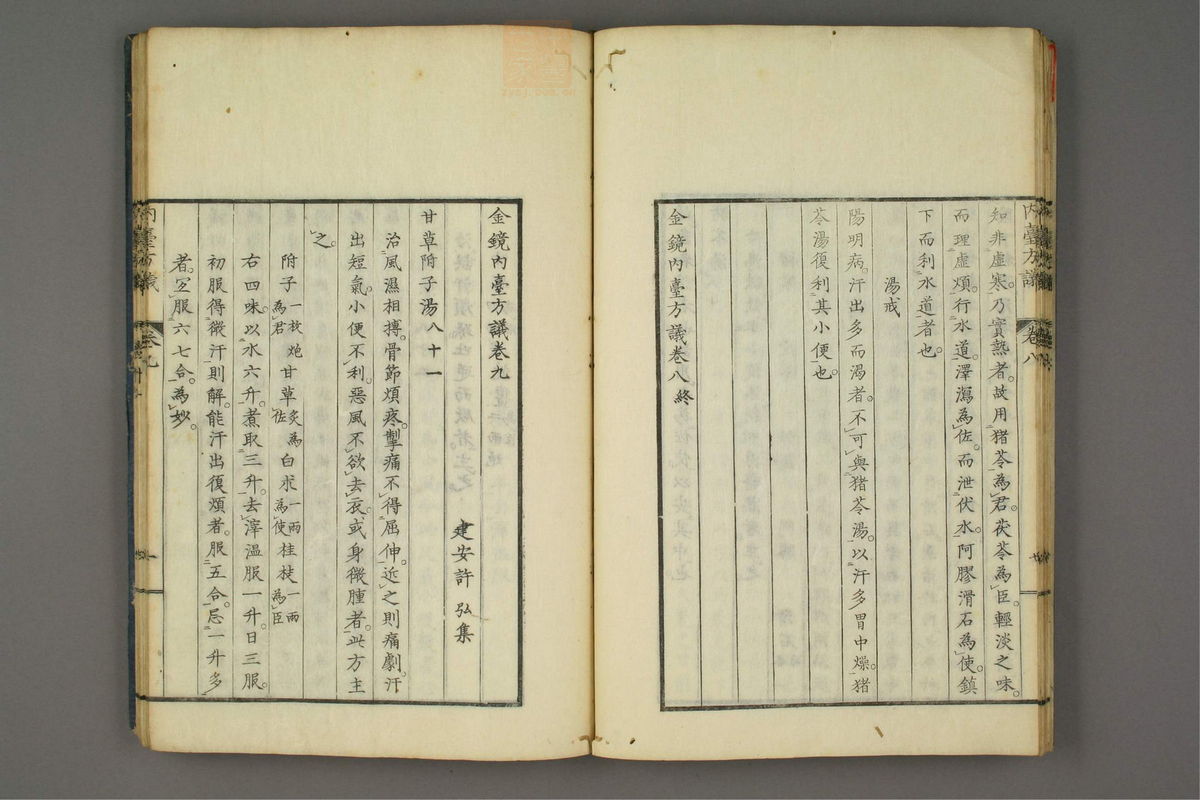 知非虛寒。乃實熱者。故用猪苓為君。茯苓為臣。輕淡之味。
而理虛煩。行水道。澤瀉為佐。而泄伏水。阿膠滑石為使。鎮
下而利水道者也。
湯戒
陽明病。汗出多而渴者。不可與猪苓湯。以汗多胃中燥。猪
苓湯復利其小便也。
金鏡內臺方議卷八終
內臺方議 卷八
金鏡內臺方議卷九
建安許弘集
甘草附子湯八十一
治風濕相搏。骨節煩疼。掣痛不得屈伸。近之則痛劇。汗
出短氣。小便不利。惡風不欲去衣。或身微腫者。此方主
之。
附子一枚炮為君 甘草炙為佐 白朮一兩為使 桂枝一兩為臣
右四味。以水六升。煮取三升。去滓溫服一升。日三服。
初服得微汗則解。能汗出復煩者。服五合。忌一升多
者。宜服六七合。為妙。
內臺方議 卷九